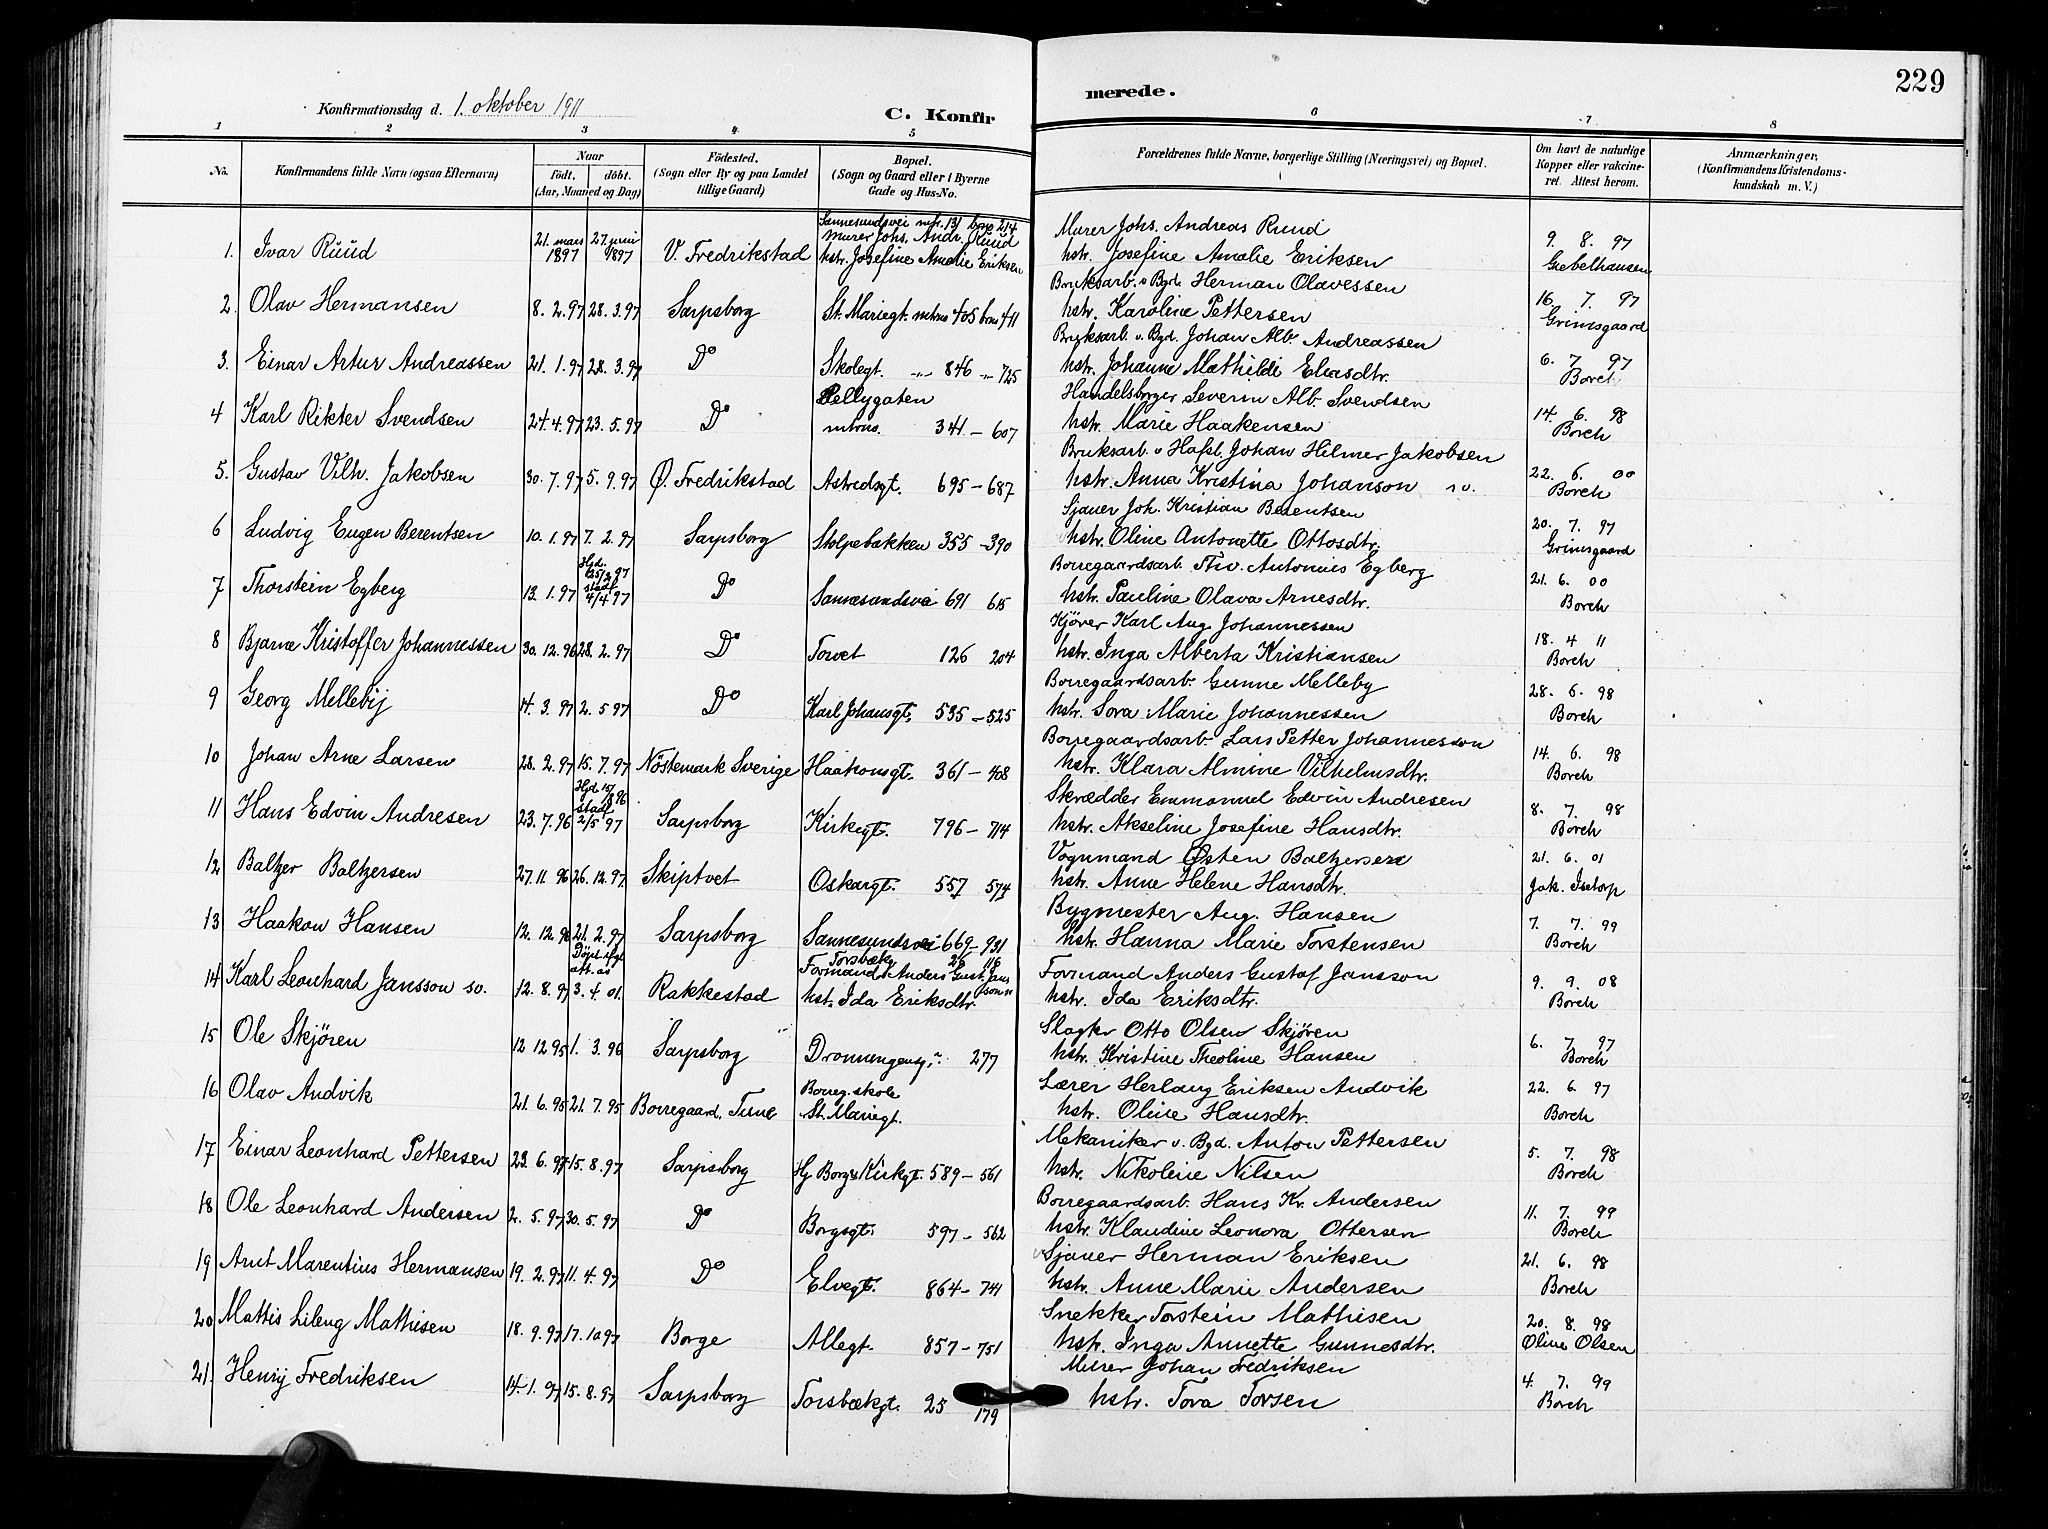 229
Konfirmationsdag d. 1. oktober 1911
C. Konfirmerede.
1 2 3 4 5 6 7 8
No. Konfirmandens fulde Navn (ogsaa Efternavn) Naar født. døbt. (Aar, Maaned og Dag) Fødested. (Sogn eller By og paa Landet tillige Gaard) Bopæl. (Sogn og Gaard eller i Byerne Gade og Hus-No. Forældrenes fulde Navne, borgerlige Stilling (Næringsvei) og Bopæl. Om havt de naturlige Kopper eller vakcineret. Attest herom. Anmærkninger. (Konfirmandens Kristendomskundskab m. V.)
Sannesundsvei mtr. 131 brno 214
1. Ivar Ruud 21. mars 1897 27. juni 1897 V. Fredrikstad Murer Johs. Andr. Ruud hstr. Josefine Amalie Eriksen Murer Johs. Andreas Ruud hstr. Josefine Amalie Eriksen 9. 8. 97 Giebelhausen
2. Olav Hermansen 8. 2. 97 28. 3. 97 Sarpsborg St. Mariegt. mtrno 405 brno 411 Bruksarb. v. Bgd. Herman Olavessen hstr. Karoline Pettersen 16. 7. 97 Grimsgaard
3. Einar Artur Andreassen 21. 1. 97 28. 3. 97 Do Skolegt. -"- 846 -"- 725 Bruksarb. v. Bgd. Johan Alb. Andreassen hstr. Johanne Mathilde Eliasdtr. 6. 7. 97 Borch
4 Karl Rikter Svendsen 24. 4. 97 23. 5. 97 Do Pellygaten mtrno. 341 - 607 Handelsborger Severin Alb. Svendsen hstr. Marie Haakensen 14. 6. 98 Borch
5. Gustav Vilh. Jakobsen 30. 7. 97 5. 9. 97 Ø. Fredrikstad Astridsgt. 695 - 687 Bruksarb. v. Hafsl. Johan Hilmer Jakobsen hstr. Anna Kristina Johanson 22. 6. 00 Borch
6 Ludvig Eugen Berentsen 10. 1. 97 7. 2. 97 Sarpsborg Stolpebakken 355 - 390 Sjauer Joh. Kristian Berentsen hstr. Oline Antonette Ottosdtr. 20. 7. 97 Grimsgaard
7 Thorstein Egberg 13. 1. 97 Hjd. 25/2 97 stadf. 4/4 97 Do Sannesundsvei 691 615 Borregaardsarb. Thv. Antonius Egberg hstr. Pauline Olava Arnesdtr. 21. 6. 00 Borch
8 Bjarne Kristoffer Johannessen 30. 12. 96 28. 2. 97 Do Torvet 126 204 Kjører Karl Aug. Johannessen hstr. Inga Alberta Kristiansen 18. 4 11 Borch
9 Georg Melleby 14. 3. 97 2. 5 97 Do Karl Johansgt. 535 - 525 Borregaardsarb. Gunne Melleby hstr. Sora Marie Johannessen 28. 6. 98 Borch
10 Johan Arne Larsen 28. 2. 97 15. 7. 97 Nöstemark Sverige Haakonsgt. 361 - 408 Borregaardsarb. Lars Petter Johannesson hstr. Klara Almine Vilhelmsdtr. 14. 6. 98 Borch
11 Hans Edvin Andresen 23. 7. 96 Hjd. 15/8 96 stadf. 2/5 97 Sarpsborg Kirkegt. 796 - 714 Skrædder Emmanuel Edvin Andresen hstr. Akseline Josefine Hansdtr. 8. 7. 98 Borch
12 Baltzer Baltzersen 27. 11. 96 26. 12. 97 Skiptvet Oskarsgt. 557 574 Vognmand Østen Baltzersen hstr. Anne Helene Hansdtr. 21. 6. 01 Jak. Isetorp
13 Haakon Hansen 12. 12. 96 21. 2. 97 Sarpsborg Sannesundsvei 669 - 931 Bygmester Aug. Hansen hstr. Hanna Marie Torstensen 7. 7. 99 Borch
14 Karl Leonhard Jansson 12. 8. 97 Døpt ifgl att. as 3. 4. 01. Rakkestad Torsbækg 26 116 Formand Anders Gust. Jansson hst. Ida Eriksdtr. Formand Anders Gustaf Jansson hstr. Ida Eriksdtr. 9. 9. 08 Borch
15 Ole Skjøren 12 12 95 1. 3. 96 Sarpsborg Dronningensg. 277 Slagter Otto Olsen Skjøren hstr. Kristine Theoline Hansen 6. 7. 97 Borch
16 Olav Andvik 21. 6. 95 21. 7. 95 Borregaard, Tune Borreg. skole St. Mariegt. Lærer Herlaug Eriksen Andvik hstr. Oline Hansdtr. 22. 6. 97 Borch
17 Einar Leonhard Pettersen 23. 6. 97 15. 8. 97 Sarpsborg Hj. Borgs Kirkgt. 589 - 561 Mekaniker v. Bgd. Anton Pettersen hstr. Nikoline Nilsen 5. 7. 98 Borch
18 Ole Leonhard Andersen 2. 5. 97 30. 5. 97 Do Borgsgt. 597 - 562 Borregaardsarb. Hans Kr. Andersen hstr. Klaudine Leonora Ottersen 11. 7. 99 Borch
19 Arnt Marentius Hermansen 19. 2. 97 11. 4. 97 Do Elvegt. 864 - 741 Sjauer Herman Eriksen hstr. Anne Marie Andersen 21. 6. 98 Borch
20 Mattis Lileng Mathisen 18. 9. 97 17. 10 97 Borge Allegt. 857 - 751 Snekker Torstein Mathisen hstr. Inga Annette Gunnesdtr. 20. 8. 98 Oline Olsen
21. Henrij Fredriksen 14. 1. 97 15. 8. 97 Sarpsborg Torsbækgt. 25 179 Murer Johan Fredriksen hstr. Tora Torsen 4. 7. 99 Borch